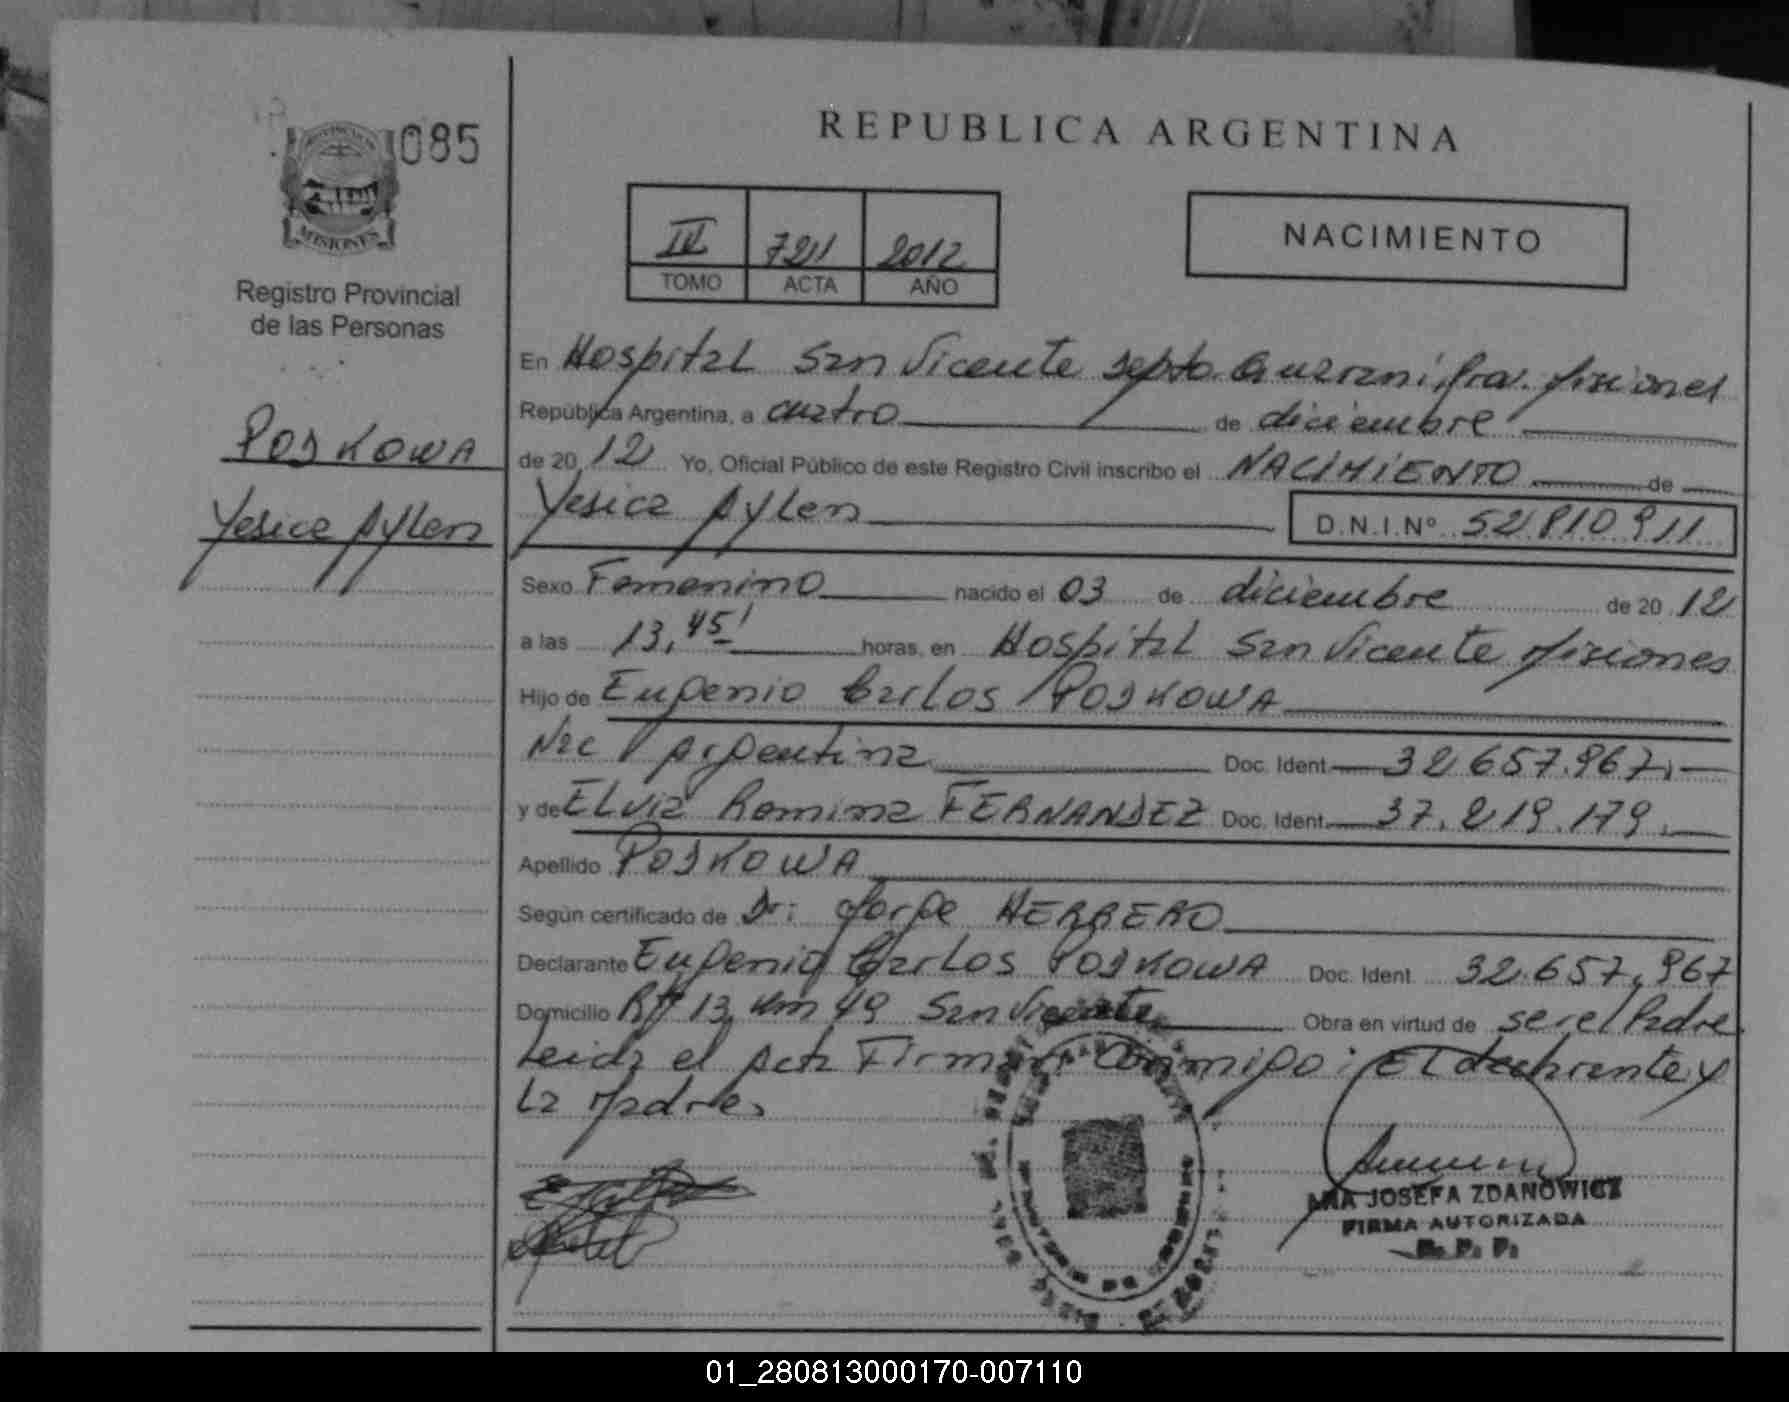 085
MISIONES
Registro Provincial
de las Personas
POSKOWA
Yesica Aylen
REPUBLICA ARGENTINA
IV 721 2012
TOMO ACTA AÑO
NACIMIENTO
En Hospital San Vicente Depto. Guarani, Prov. Misiones
República Argentina, a cuatro de diciembre
de 20 12 Yo, Oficial Público de este Registro Civil inscribo el NACIMIENTO de
Yesica Aylen D.N.I.Nº 52.810.911
Sexo Femenino nacido el 03 de diciembre de 20 12
a las 13,45' horas, en Hospital San Vicente Misiones
Hijo de Eugenio Carlos POSKOWA
Nac Argentina Doc. Ident. 32.657.967.
y de ELvia Romina FERNANDEZ Doc. Ident. 37.219.179.
Apellido POSKOWA
Según certificado de Dr: Jorge HERRERO
Declarante Eugenio Carlos POSKOWA Doc. Ident. 32.657.967
Domicilio Rta 13 Km 49 San Vicente Obra en virtud de ser el Padre
Leida el acta Firman Conmigo: El declarante y
La Madre.
ANA JOSEFA ZDANOWICZ
FIRMA AUTORIZADA
R. P. P.
01_280813000170-007110